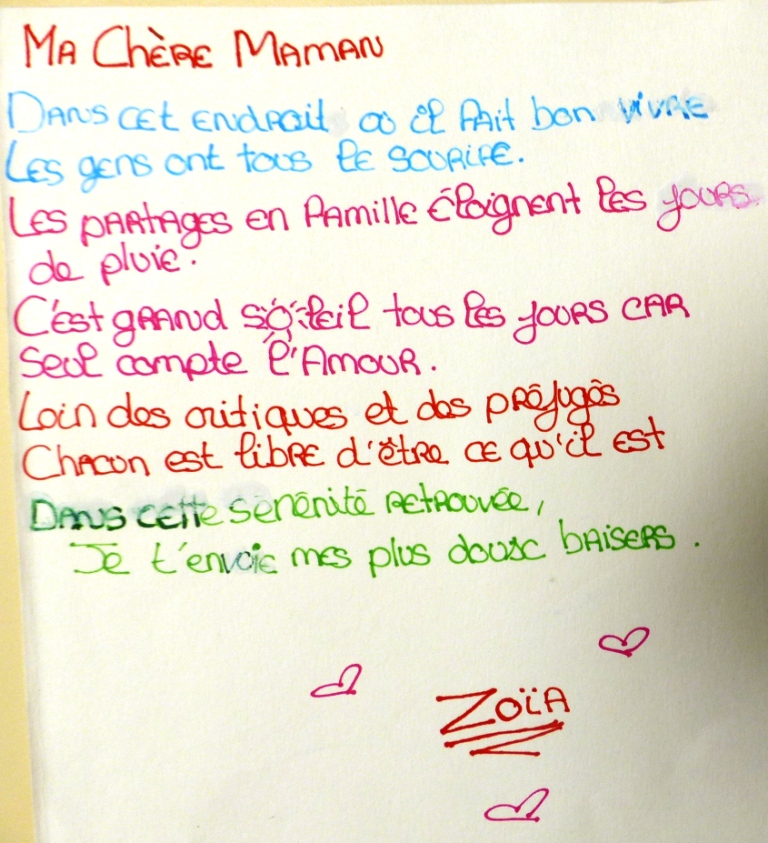 Ma Chère Maman
Dans cet endroit où il fait bon vivre
Les gens ont tous le sourire.
Les partages en famille éloignent les jours
de pluie.
C'est grand soleil tous les jours car
seul compte l'Amour.
Loin des critiques et des préjugés
Chacun est libre d'être ce qu'il est
Dans cette sérénité retrouvée,
Je t'envoie mes plus doux baisers.
Zoïa